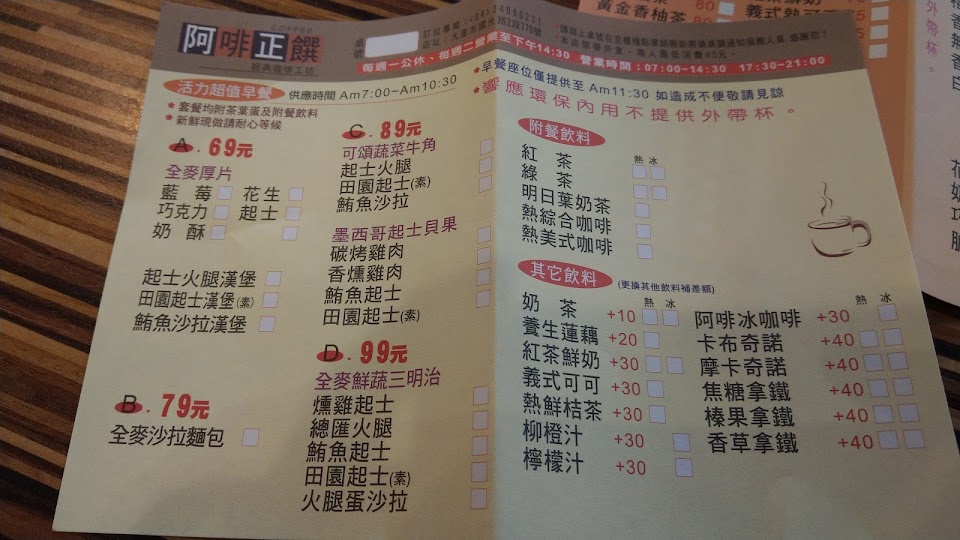 COFFEE
阿啡正饌
經典咖啡工坊
桌號
店址：大里市國光路2段770號
每週一公休、每週二營業至下午14:30 營業時間：07:00~14:30 17:30~21:00
活力超值早餐 供應時間 Am7:00~Am10:30
★套餐均附茶葉蛋及附餐飲料
★新鮮現做請耐心等候
A．69元
全麥厚片
藍莓 花生
巧克力 起士
奶酥
起士火腿漢堡
田園起士漢堡(素)
鮪魚沙拉漢堡
B．79元
全麥沙拉麵包
C．89元
可頌蔬菜牛角
起士火腿
田園起士(素)
鮪魚沙拉
墨西哥起士貝果
碳烤雞肉
香燻雞肉
鮪魚起士
田園起士(素)
D．99元
全麥鮮蔬三明治
燻雞起士
總匯火腿
鮪魚起士
田園起士(素)
火腿蛋沙拉
★早餐座位僅提供至 Am11:30 如造成不便敬請見諒
★響應環保內用不提供外帶杯。
附餐飲料
熱 冰
紅茶
綠茶
明日葉奶茶
熱綜合咖啡
熱美式咖啡
其它飲料 (更換其他飲料補差額)
熱 冰
奶茶 +10
養生蓮藕 +20
紅茶鮮奶 +30
義式可可 +30
熱鮮桔茶 +30
柳橙汁 +30
檸檬汁 +30
熱 冰
阿啡冰咖啡 +30
卡布奇諾 +40
摩卡奇諾 +40
焦糖拿鐵 +40
榛果拿鐵 +40
香草拿鐵 +40
黃金香柚茶 80
義式熱可可
外帶杯。